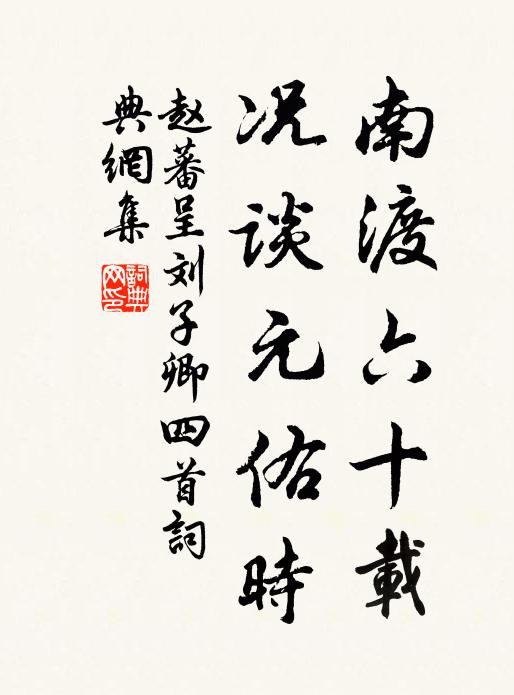 南渡六十載
况谈元佑時
赵蕃呈刘子卿四首詞
典網集
詞典网印